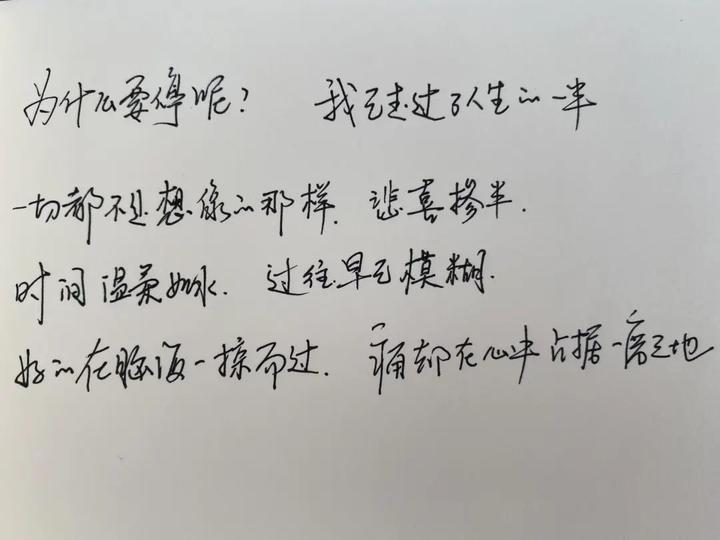 为什么要停呢? 我已走过了人生的一半
一切都不是想像的那样. 悲喜掺半.
时间温柔如水. 过往早已模糊.
好的在脑海一掠而过. 痛却在心中占据一席之地